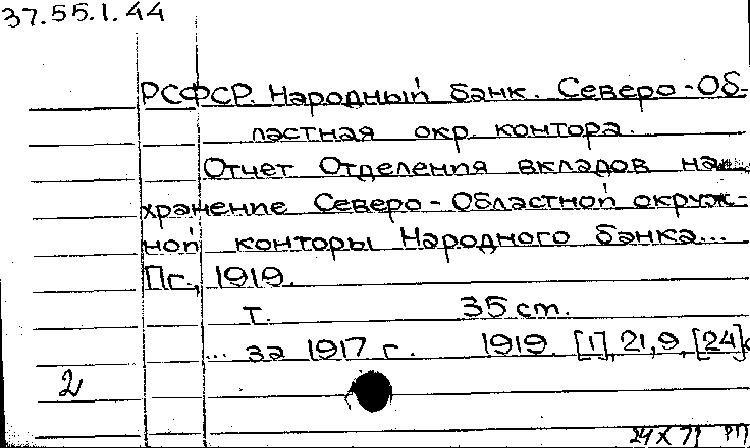 37.55.1.44
РСФСР. Народный банк. Северо-Об-
ластная окр. контора.
Отчет Отделения вкладов на
хранение Северо-Областной окруж-
ной конторы Народного банка...
Пг., 1919.
т. 35 см.
... за 1917 г. 1919. [1], 21, 9, [24] с
2
24 X 79